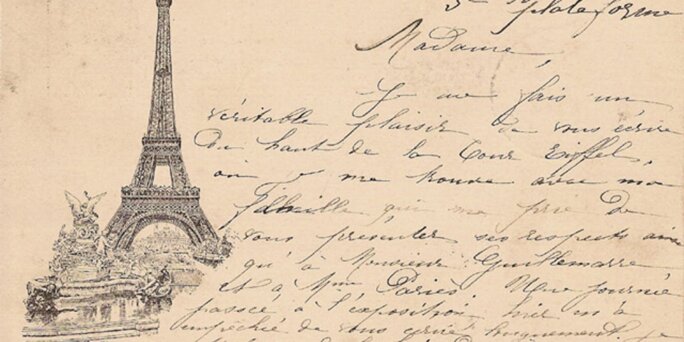 plateforme
Madame,
Je me fais un
véritable plaisir de vous écrire
du haut de la Tour Eiffel,
où je me trouve avec ma
famille qui me prie de
vous présenter ses respects ainsi
qu'à Monsieur Guillemarre
et à Mme Paris. Une journée
passée à l'exposition hier m'a
empêché de vous écrire longuement, je